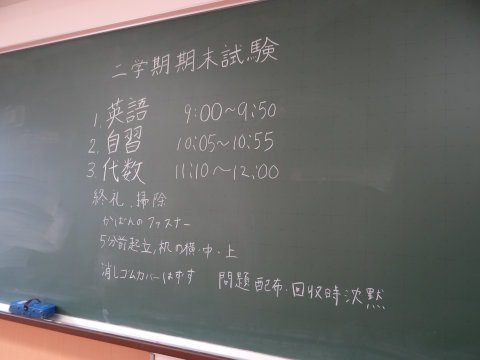 二学期期末試験
1. 英語 9:00~9:50
2. 自習 10:05~10:55
3. 代数 11:10~12:00
終礼、掃除
かばんのファスナー
5分前起立,机の横・中・上
消しゴムカバーはずす 問題配布・回収時沈黙